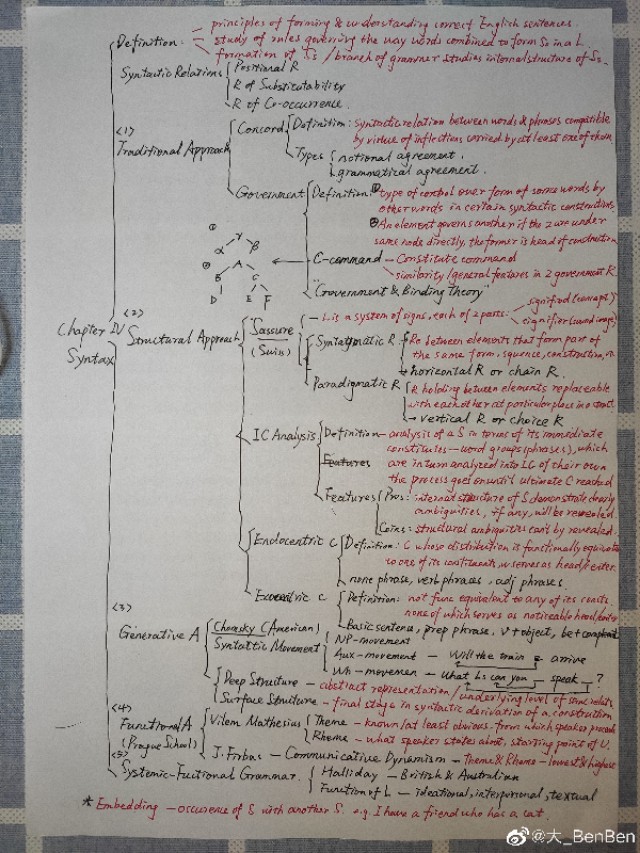 Definition: principles of forming & understanding correct English sentences.
study of rules governing the way words combined to form Ss in a L.
formation of Ss / branch of grammar studies internal structure of Ss.
Syntactic Relations Positional R
R of Substitutability
R of Co-occurrence.
<1>
Traditional Approach
Concord Definition: syntactic relation between words & phrases compatible
by virtue of inflections carried by at least one of them.
Types notional agreement.
grammatical agreement.
Government Definition: ① type of control over form of some words by
other words in certain syntactic constructions
② An element governs another if the 2 are under
same node directly, the former is head of construction
① γ
α β
② A
B C
D E F
C-command — Constitute command
similarity/general features in 2 government R
"Government & Binding Theory"
Chapter IV
Syntax
<2>
Structural Approach
Sassure
(Swiss)
— L is a system of signs, each of 2 parts: signified (concept)
signifier (sound image)
Syntagmatic R Rs between elements that form part
of the same form, squence, construction,
→ horizontal R or chain R.
Paradigmatic R R holding between elements replaceable
with each other at particular place in
→ vertical R or choice R
IC Analysis Definition — analysis of a S in terms of its immediate
constitutes — word groups (phrases), which
are in turn analyzed into IC of their own
the process goes on until ultimate C reached
Features
Features Pros: internal structure of S demonstrate clearly
ambiguities, if any, will be revealed
Coins: structural ambiguities can't be revealed.
Endocentric C Definition: C whose distribution is functionally equivalent
to one of its constituents, w serves as head/center.
none phrase, verb phrases, adj phrases.
Exocentric C Definition: not func equivalent to any of its consts,
none of which serves as noticeable head/center
Basic sentence, prep phrase, V + object, be + complement
<3>
Generative A
Chomsky (American)
Syntactic Movement NP-movement
Aux-movement — Will the train arrive
Wh-movemen — What Ls can you speak ?
Deep Structure — abstract representation / underlying level of some relats
Surface Structure — final stage in syntactic derivation of a construction
<4>
Functional A
(Prague School)
Vilem Mathesius Theme — known/at least obvious. from which speaker proceeds
Rheme — what speaker states about, starting point of U.
J. Firbas — Communicative Dynamism — Theme & Rheme — lowest & highest
<5>
Systemic-Fuctional Grammar. Halliday — British & Australian
Function of L — ideational, interpersonal, textual
* Embedding — occurence of S with another S. e.g. I have a friend who has a cat.
@大_BenBen